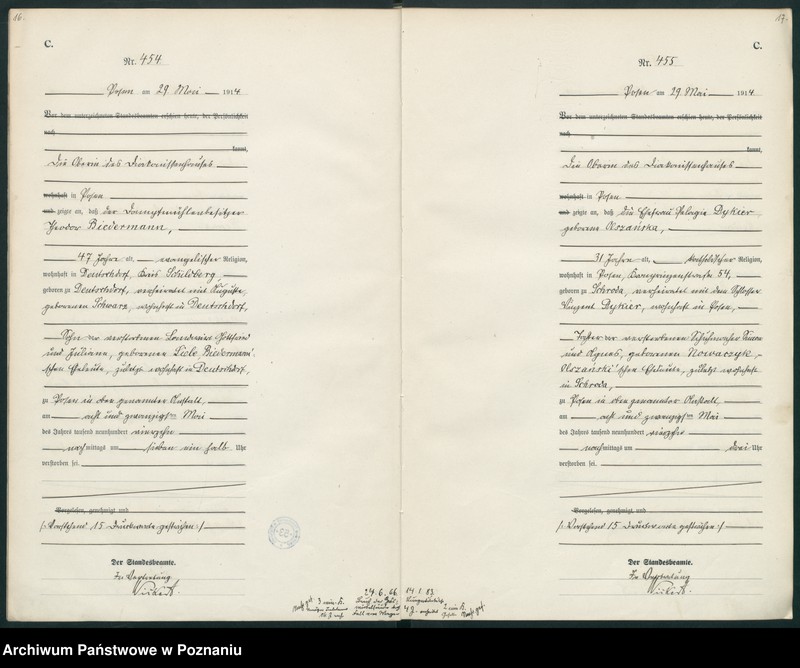 16.
C.
Nr. 454
Posen am 29 Mai 1914
Vor dem unterzeichneten Standesbeamten erschien heute, der Persönlichkeit
nach
kannt,
Die Oberin des Diakonissenhauses
wohnhaft in Posen
und zeigte an, daß der Dampfmühlenbesitzer
Theodor Biedermann,
47 Jahre alt, evangelischer Religion,
wohnhaft in Deutschdorf, Kreis Schildberg
geboren zu Deutschdorf, verheiratet mit Auguste,
geborenen Schwarz, wohnhaft in Deutschdorf,
Sohn der verstorbenen
und Juliane, geborenen Biedermann'
schen Eheleute, zuletzt wohnhaft in Deutschdorf,
zu Posen in oben genannter Anstalt,
am acht und zwanzigsten Mai
des Jahres tausend neunhundert vierzehn
nachmittags um sieben ein halb Uhr
verstorben sei.
Vorgelesen, genehmigt und
/: Vorstehend 15 Druckworte gestrichen :/
Der Standesbeamte.
In Vertretung
17.
C.
Nr. 455
Posen am 29 Mai 1914
Vor dem unterzeichneten Standesbeamten erschien heute, der Persönlichkeit
nach
kannt,
Die Oberin des Diakonissenhauses
wohnhaft in Posen
und zeigte an, daß die Ehefrau Pelagie Dykier
geborene Olszańska,
31 Jahre alt, katholischer Religion,
wohnhaft in Posen, 54,
geboren zu Schroda, verheiratet mit dem Schlosser
Vincent Dykier, wohnhaft in Posen,
Tochter der verstorbenen Schuhmacher
und Agnes, geborenen Nowaczyk,
Olszański'schen Eheleute, zuletzt wohnhaft
in Schroda,
zu Posen in oben genannter Anstalt
am acht und zwanzigsten Mai
des Jahres tausend neunhundert vierzehn
nachmittags um drei Uhr
verstorben sei.
Vorgelesen, genehmigt und
/: Vorstehend 15 Druckworte gestrichen :/
Der Standesbeamte.
In Vertretung
24.6.66
14.1.83
Archiwum Państwowe w Poznaniu